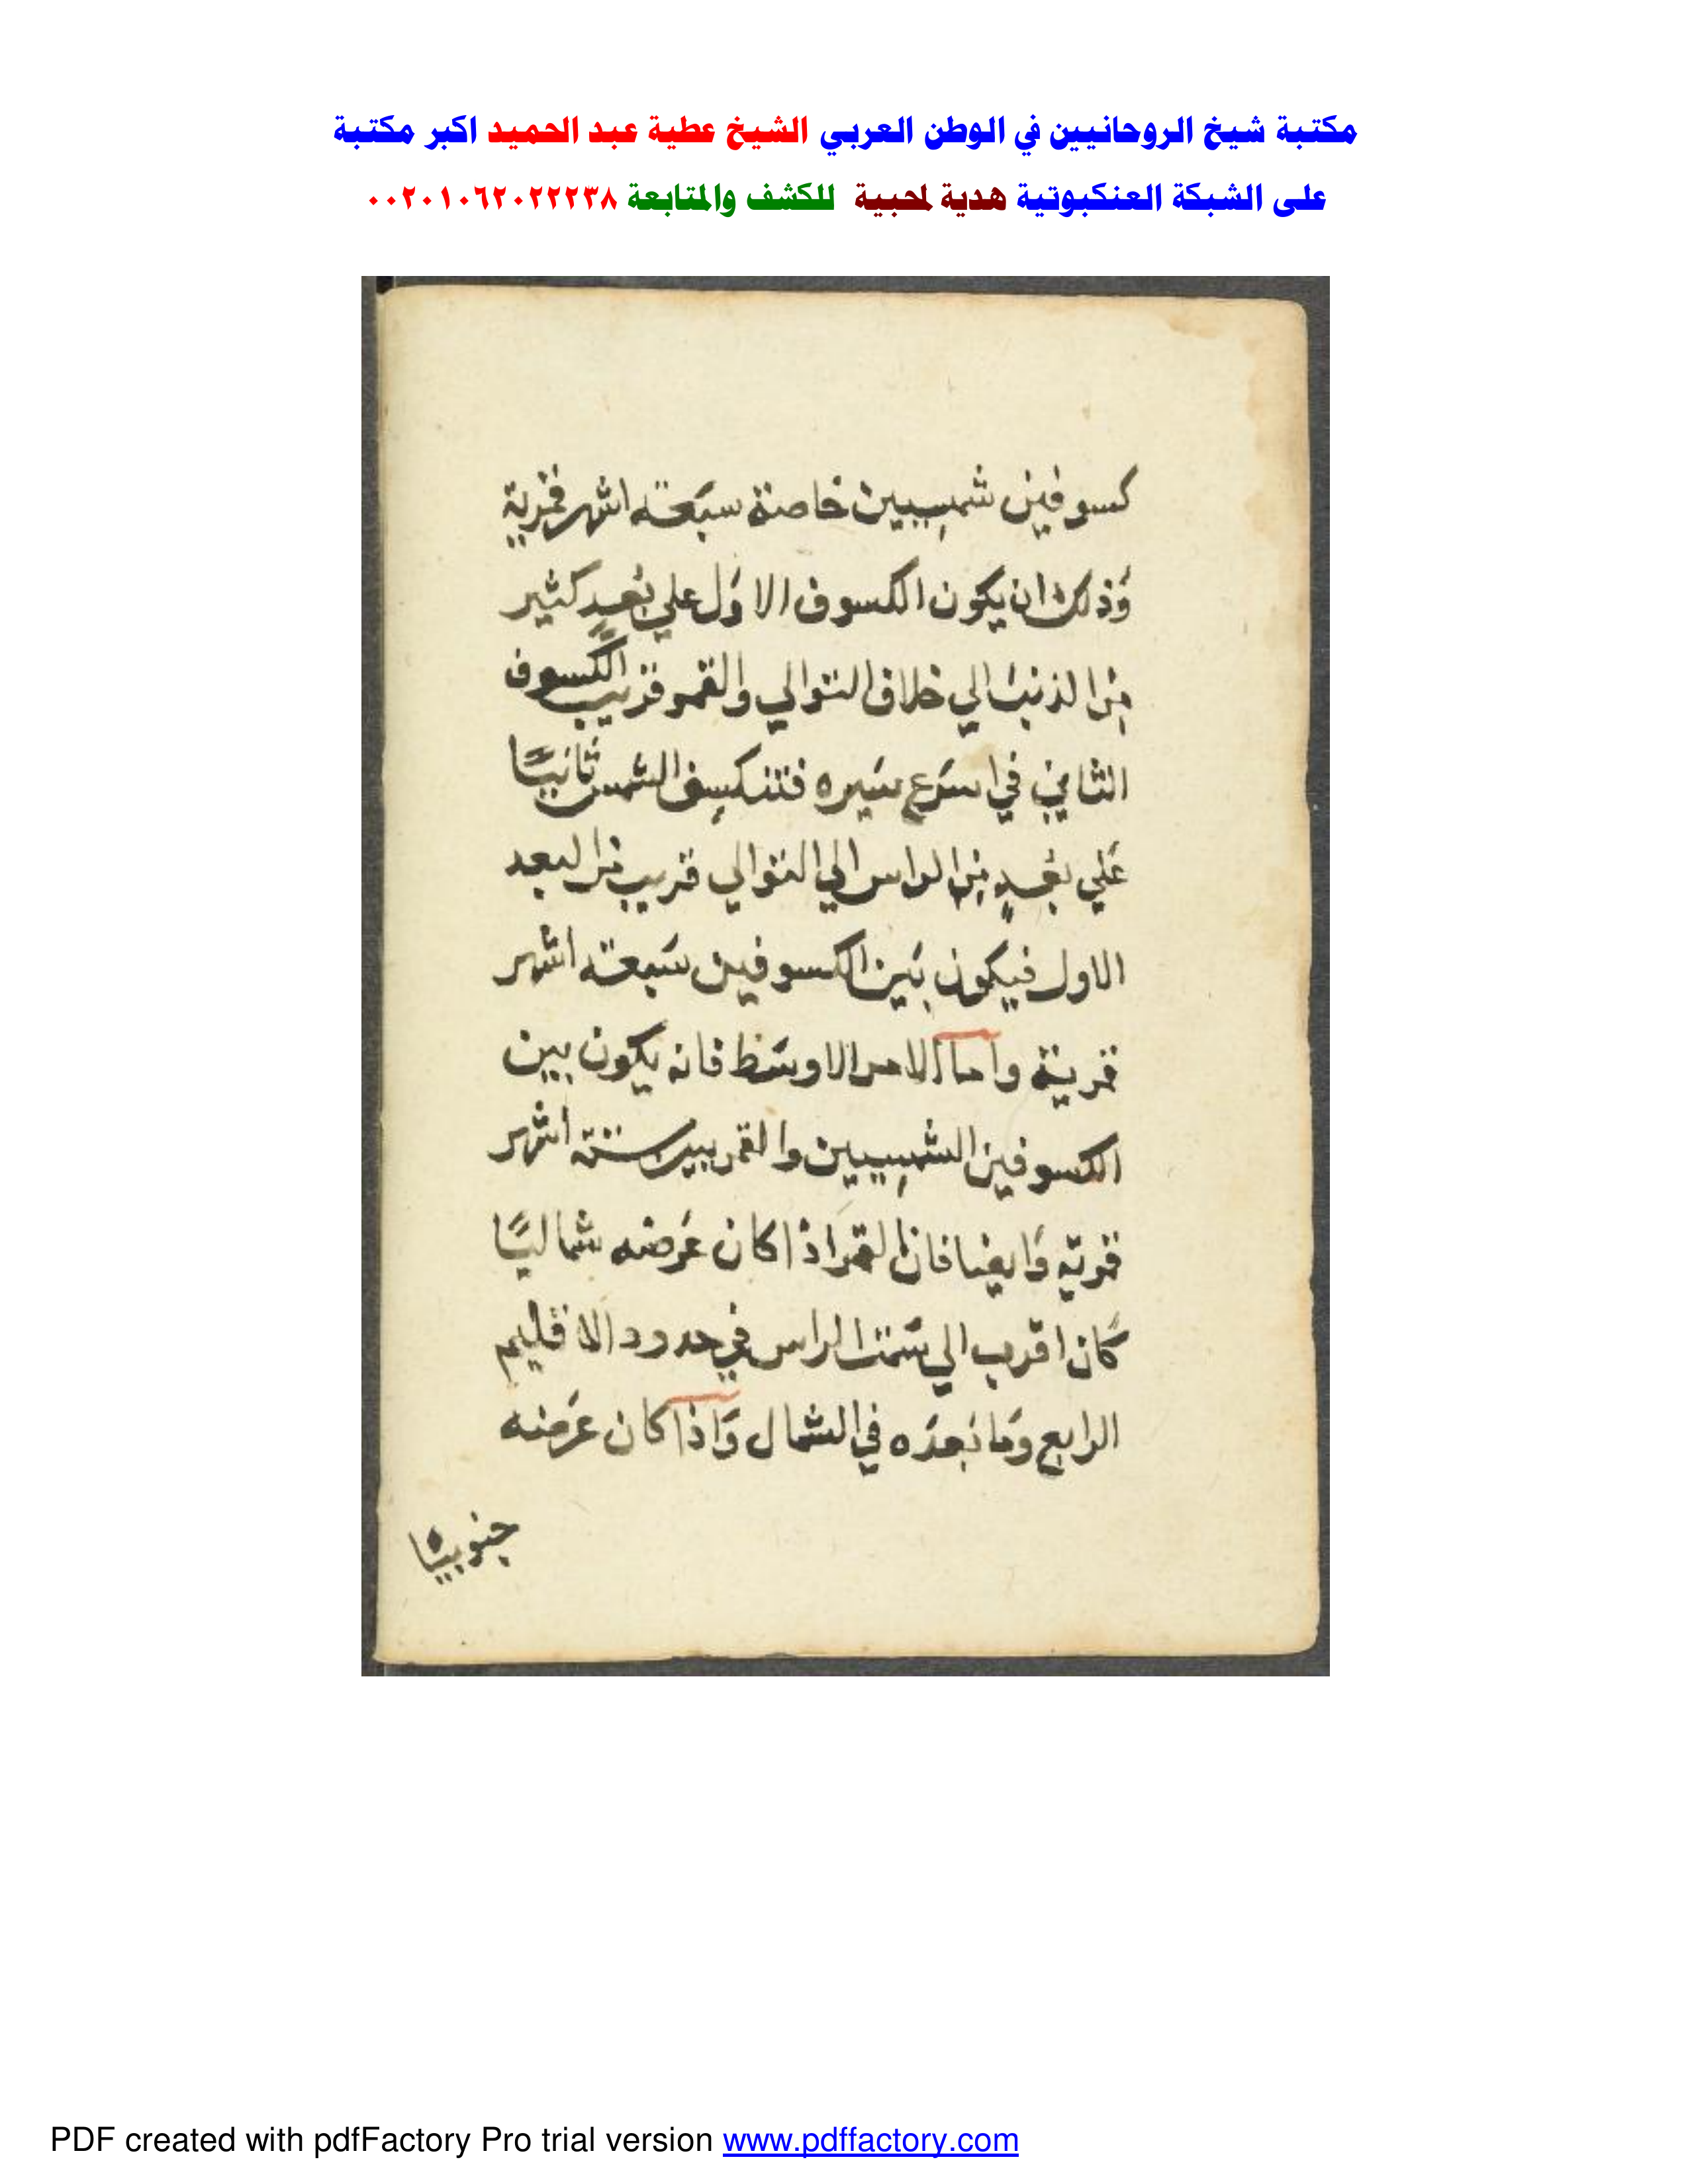 مكتبة شيخ الروحانيين في الوطن العربي الشيخ عطية عبد الحميد اكبر مكتبة
على الشبكة العنكبوتية هدية لمحبية للكشف والمتابعة ٠٠٢٠١٠٦٢٠٢٢٢٣٨
كسوفين شمسيين خاصة سبعة اشهر قمرية
وذلك ان يكون الكسوف الاول علي بعد كثير
من الذنب الي خلاف التوالي والقمر قريب الكسوف
الثاني في اسرع سيره فتنكسف الشمس ثانيًا
علي بعدٍ من الراس الي التوالي قريب من البعد
الاول فيكون بين الكسوفين سبعة اشهر
قمرية واما الامر الاوسط فانه يكون بين
الكسوفين الشمسيين والقمريين ستة اشهر
قمرية وايضا فان القمر اذا كان عرضه شماليًا
كان اقرب الي سمت الراس في حدود الاقليم
الرابع وما بعده في الشمال واذا كان عرضه
جنوبيا
PDF created with pdfFactory Pro trial version www.pdffactory.com